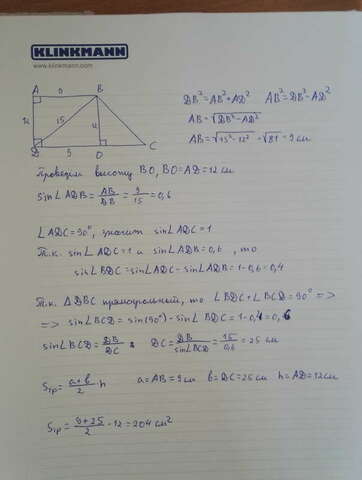 KLINKMANN
www.klinkmann.com
A 9 B
12 15 12
D 9 O C
DB²=AB²+AD² AB²=DB²-AD²
AB=√DB²-AD²
AB=√15²-12²=√81=9 см
Проведем высоту BO, BO=AD=12 см
sin∠ADB=AB/DB=9/15=0,6
∠ADC=90°, значит sin∠ADC=1
Т.к. sin∠ADC=1 и sin∠ADB=0,6, то
sin∠BDC=sin∠ADC-sin∠ADB=1-0,6=0,4
Т.к. ΔDBC прямоугольный, то ∠BDC+∠BCD=90° =>
=> sin∠BCD=sin(90°)-sin∠BDC=1-0,4=0,6
sin∠BCD=DB/DC DC=DB/sin∠BCD=15/0,6=25 см
Sтр=a+b/2·h a=AB=9 см b=DC=25 см h=AD=12 см
Sтр=9+25/2·12=204 см²